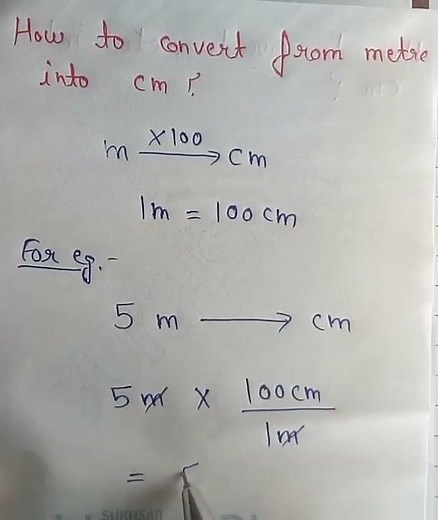 How to convert from metre
into cm ?
m ×100 → cm
1m = 100 cm
For eg. -
5 m → cm
5 m × 100cm / 1m
= 5
SUKHSAR